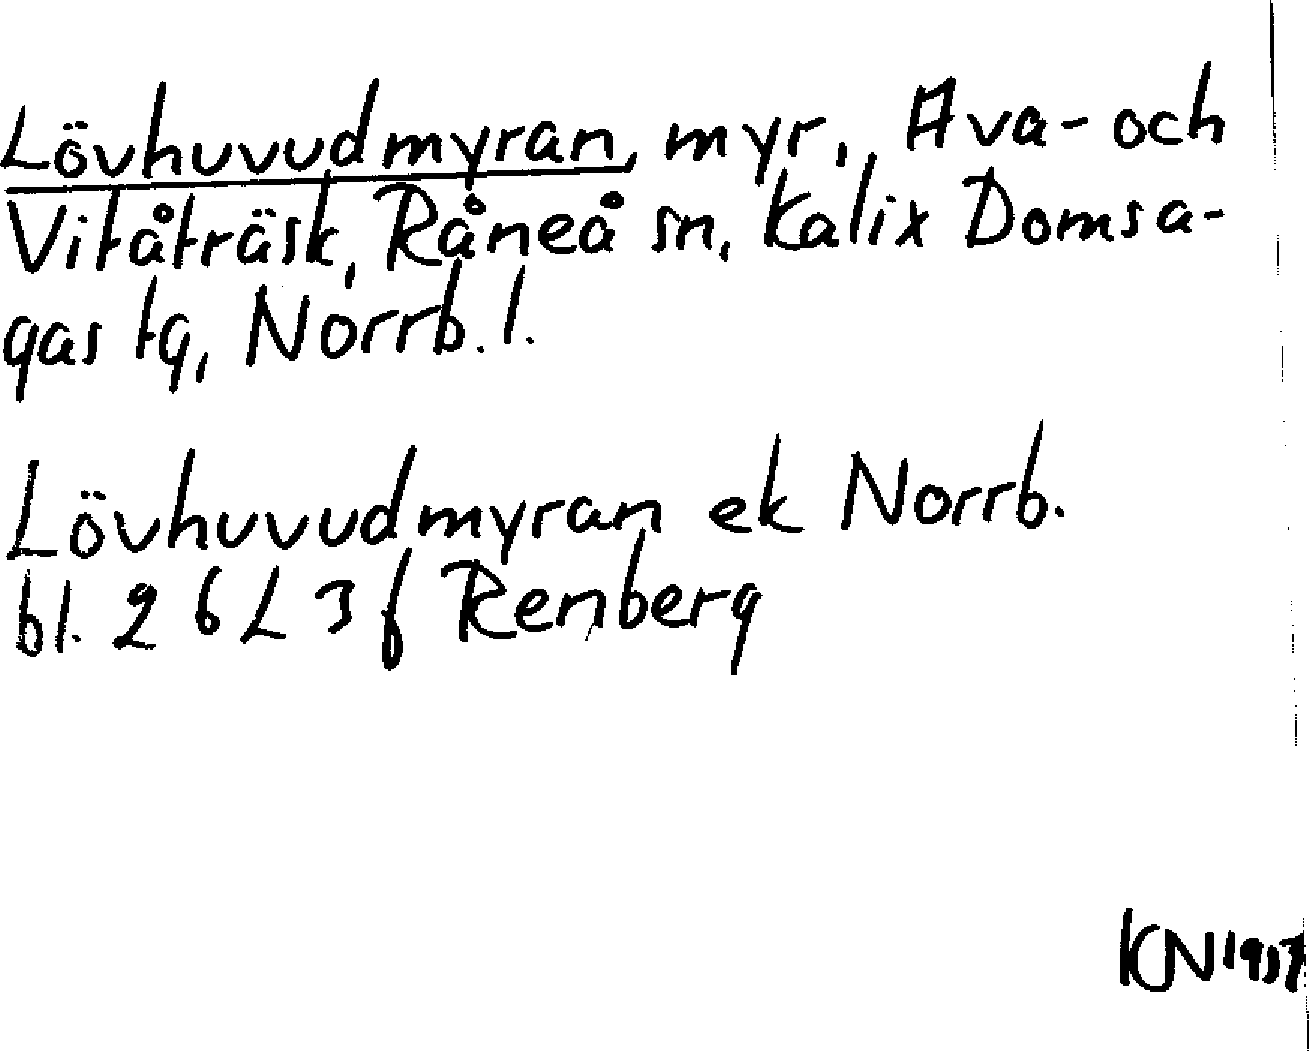 Lövhuvudmyran, myr, Ava- och
Vitåträsk, Råneå sn, Kalix Domsa-
gas tg, Norrb. l.
Lövhuvudmyran ek Norrb.
bl. 26 L 3 f Renberg
KN 1937